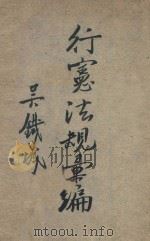 行憲法規彙編
吳鐵城